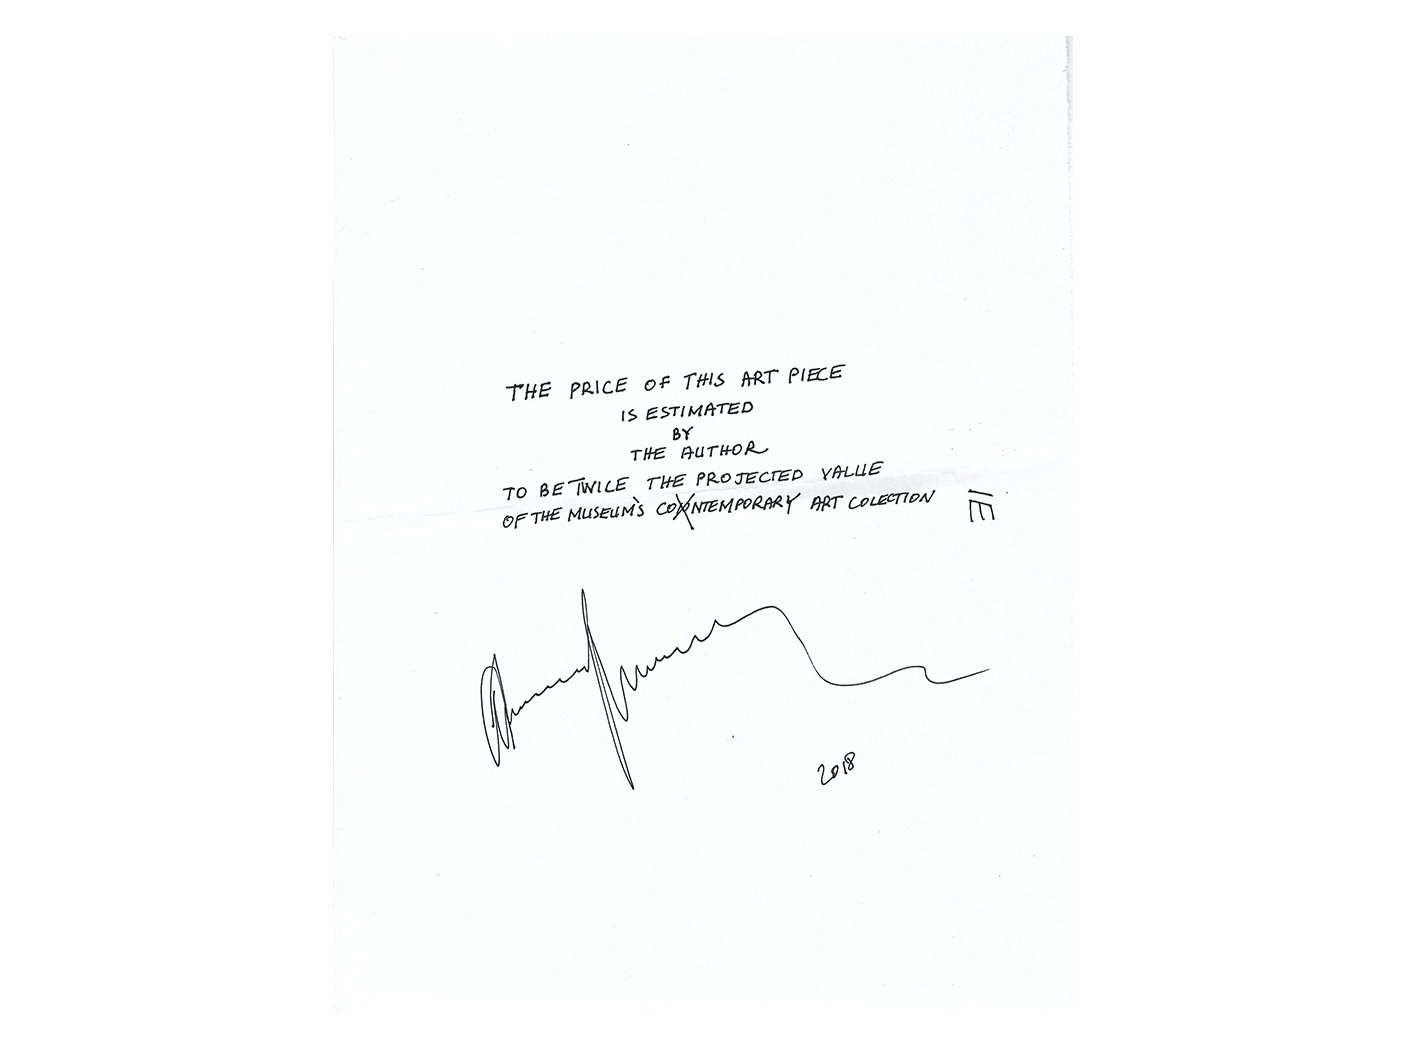 THE PRICE OF THIS ART PIECE
IS ESTIMATED
BY
THE AUTHOR
TO BE TWICE THE PROJECTED VALUE
OF THE MUSEUM'S CONTEMPORARY ART COLECTION
2018